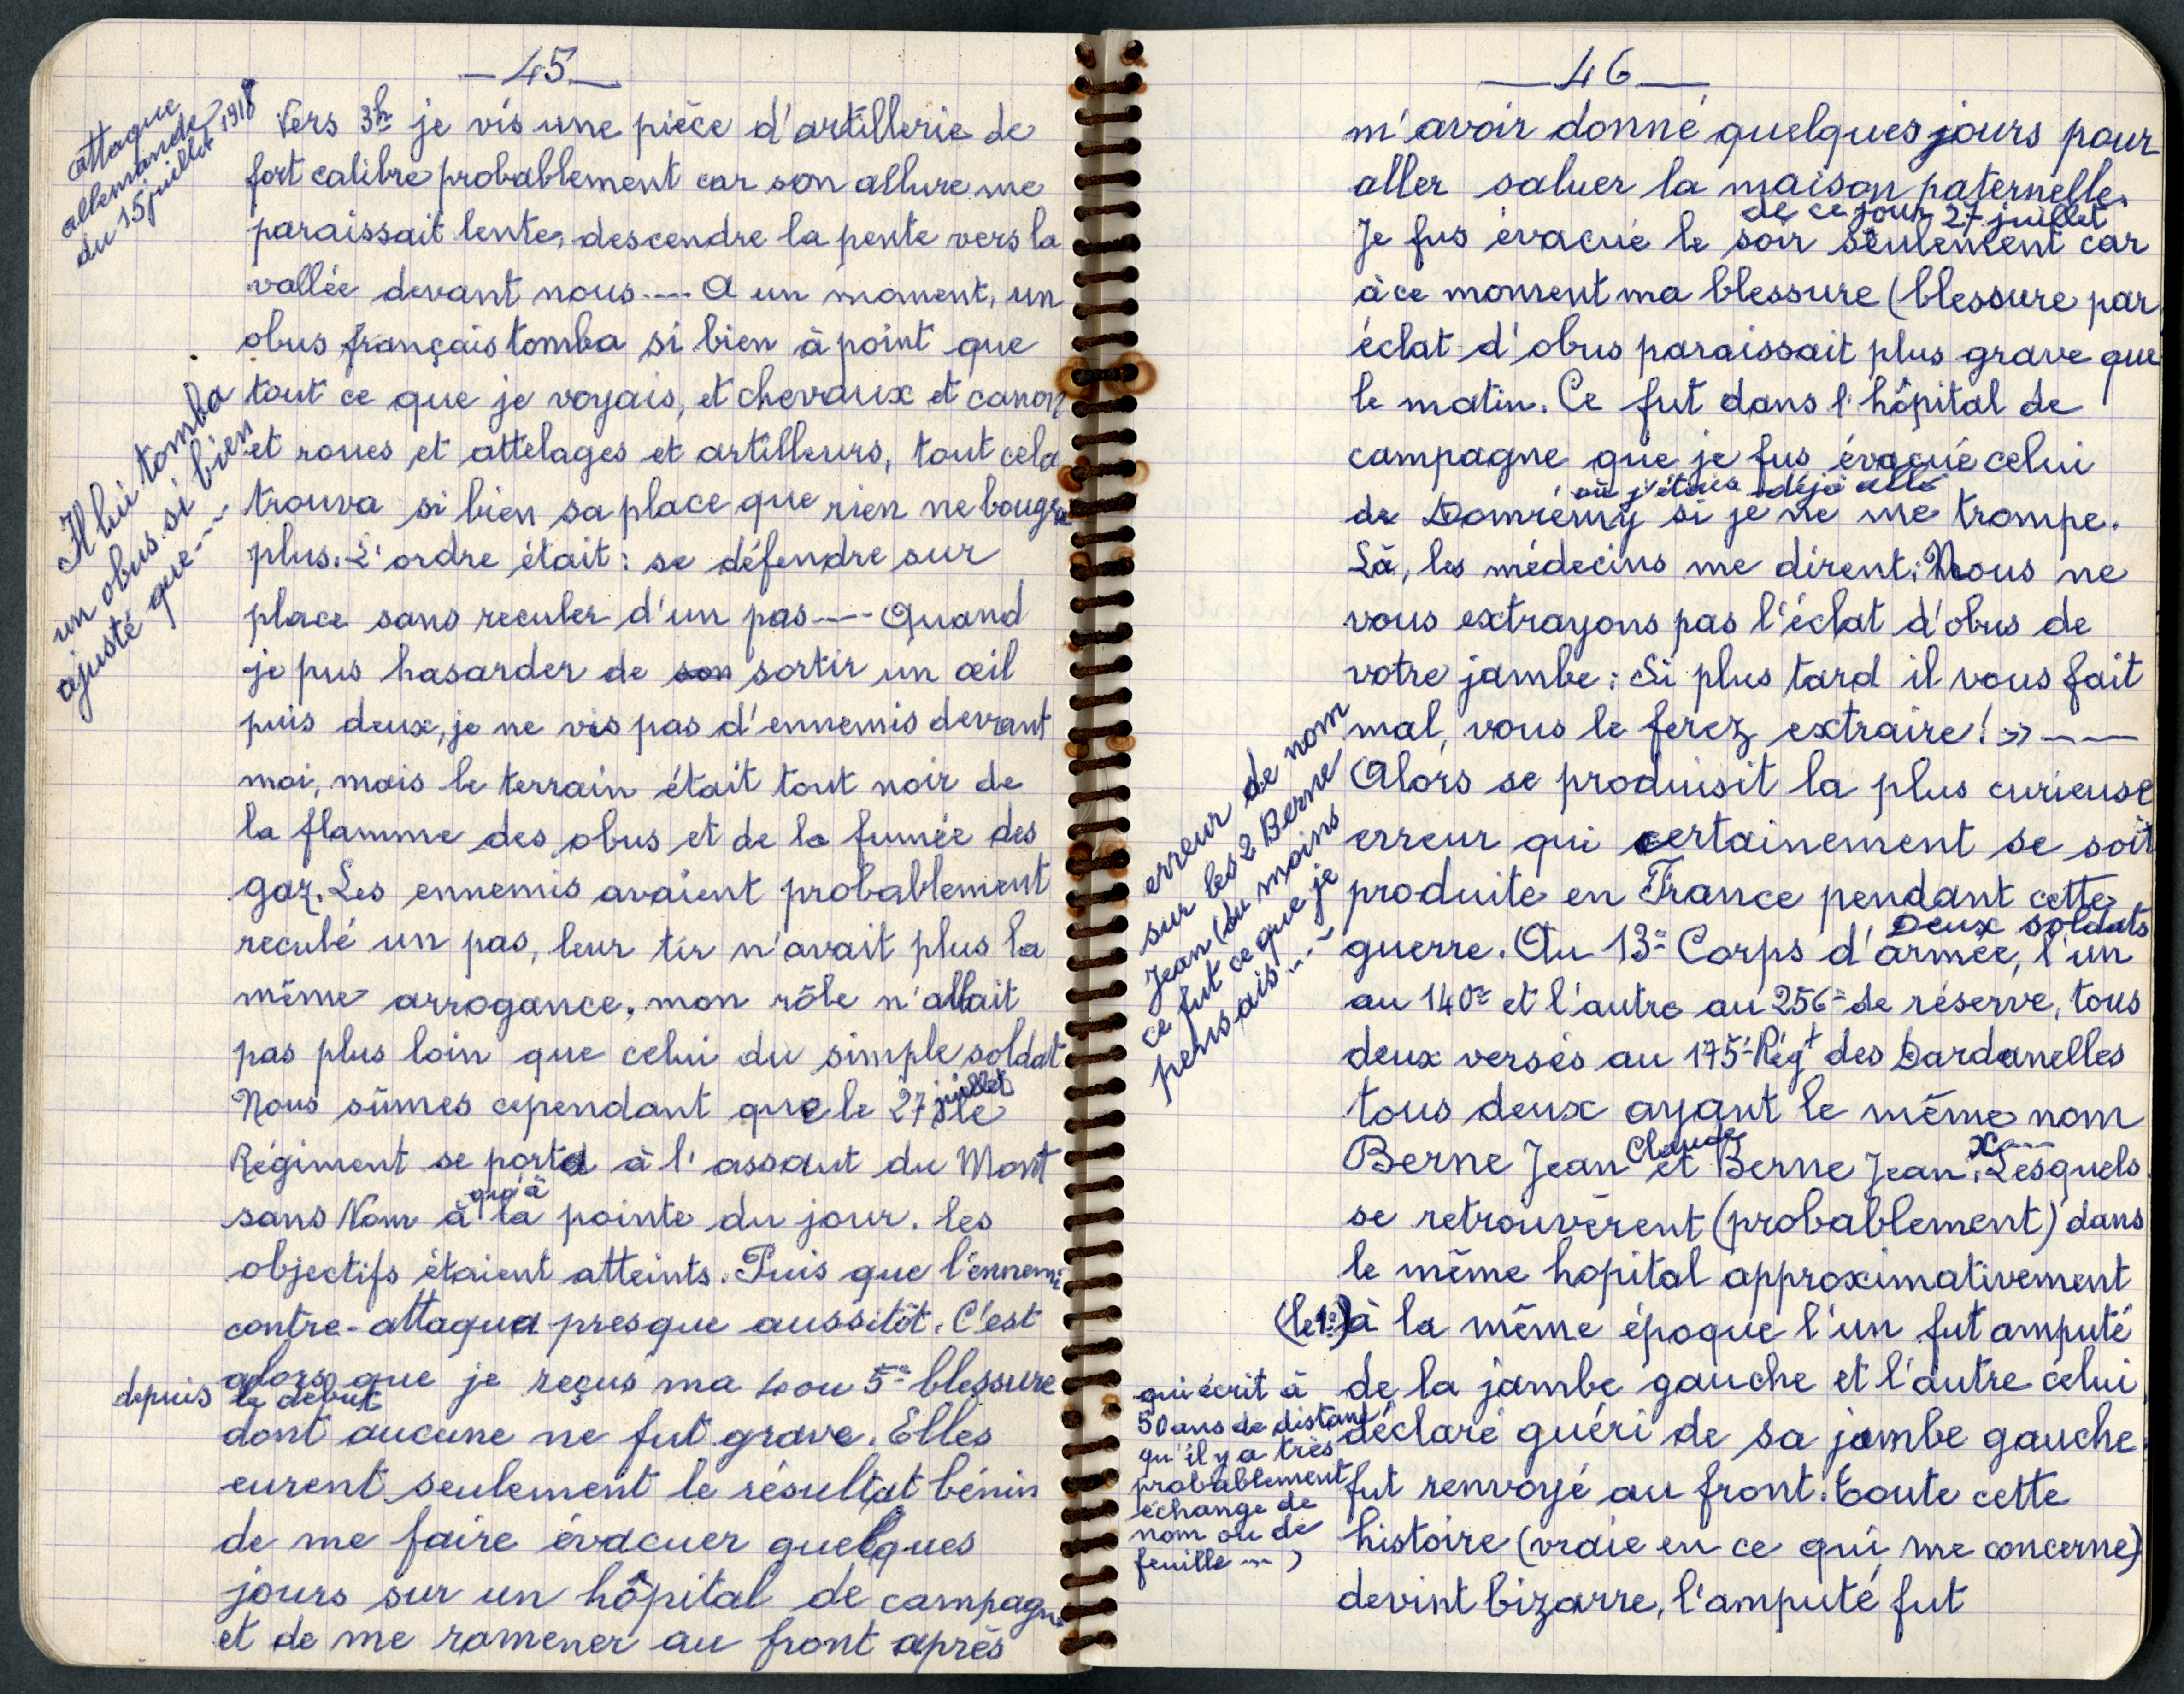 — 45 —
attaque
allemande
du 15 juillet 1918
Vers 3h je vis une pièce d'artillerie de
fort calibre probablement car son allure me
paraissait lente, descendre la pente vers la
vallée devant nous .... A un moment, un
obus français tomba si bien à point que
tout ce que je voyais, et chevaux et canon
et roues et attelages et artilleurs, tout cela
trouva si bien sa place que rien ne bougea
plus. L'ordre était : se défendre sur
place sans reculer d'un pas .... Quand
je pus hasarder de son sortir un œil
puis deux, je ne vis pas d'ennemis devant
moi, mais le terrain était tout noir de
la flamme des obus et de la fumée des
gaz. Les ennemis avaient probablement
reculé un pas, leur tir n'avait plus la
même arrogance, mon rôle n'allait
pas plus loin que celui du simple soldat
juillet
Nous sûmes cependant que le 27 le
Régiment se porta à l'assaut du Mont
qu'à
sans Nom à la pointe du jour. les
objectifs étaient atteints. Puis que l'ennemi
contre-attaqua presque aussitôt. C'est
alors que je reçus ma 4 ou 5e blessure
depuis le début
dont aucune ne fut grave. Elles
eurent seulement le résultat bénin
de me faire évacuer quelques
jours sur un hôpital de campagne
et de me ramener au front après
Il lui tomba
un obus si bien
ajusté que ....
— 46 —
m'avoir donné quelques jours pour
aller saluer la maison paternelle.
de ce jour 27 juillet
Je fus évacué le soir seulement car
à ce moment ma blessure (blessure par
éclat d'obus paraissait plus grave que
le matin. Ce fut dans l'hôpital de
campagne que je fus évacué celui
où j'étais déjà allé
de Domrémy si je ne me trompe.
Là, les médecins me dirent: Nous ne
vous extrayons pas l'éclat d'obus de
votre jambe : Si plus tard il vous fait
mal, vous le ferez extraire ! » ——
Alors se produisit la plus curieuse
erreur qui certainement se soit
produite en France pendant cette
Deux soldats
guerre. Au 13e Corps d'armée, l'un
au 140e et l'autre au 256e de réserve, tous
deux versés au 175e Régt des Dardanelles
tous deux ayant le même nom
Claude X ...
Berne Jean et Berne Jean. Lesquels
se retrouvèrent (probablement) dans
le même hopital approximativement
(le 1er) à la même époque l'un fut amputé
de la jambe gauche et l'autre celui
déclaré guéri de sa jambe gauche
fut renvoyé au front. Toute cette
histoire (vraie en ce qui me concerne)
devint bizarre, l'amputé fut
erreur de nom
sur les 2 Berne
Jean (du moins
ce fut ce que je
pensais ....
qui écrit à
50 ans de distance
qu'il y a très
probablement
échange de
nom ou de
feuille ... )